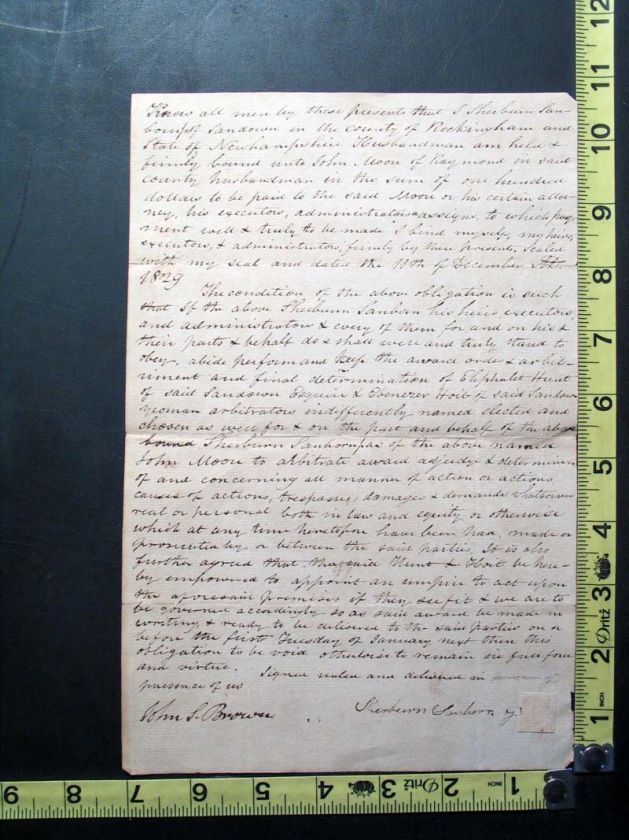 Know all men by these presents that I Sherburn San-
born of Sandown in the county of Rockingham and
State of Newhampshire Husbandman am held &
firmly bound unto John Moore of Raymond in said
county husbandman in the sum of one hundred
dollars to be paid to the said Moore or his certain attor-
ney, his executors, administrators & assigns, to which pay-
ment well & truly to be made I bind myself, my heirs,
executors, & administrators firmly by these presents, Sealed
with my seal and dated the 11th of December A.D.
1829
The condition of the above obligation is such
that If the above Sherburn Sanborn his heirs executors,
and administrators & every of them for and on his &
their parts & behalf do & shall well and truly stand to
obey, abide perform and keep the award order & arbit-
riment and final determination of Eliphalet Hunt
of said Sandown Esquire & Ebenezer Hoit of said Sandown
yeoman arbitrators indifferently named elected and
chosen as well for & on the part and behalf of the above
bound Sherburn Sanborn as of the above named
John Moore to arbitrate award adjudge & determine
of and concerning all manner of action or actions
causes of actions, trespasses, damages & demands whatsoever
real or personal both in law and equity or otherwise
which at any time heretofore have been had, made or
prosecuted by or between the said parties, It is also
further agreed that the said Hunt & Hoit be here-
by empowered to appoint an umpire to act upon
the aforesaid premises if they see fit & we are to
be governed accordingly so as said award be made in
writing & ready to be delivered to the said parties on or
before the first Tuesday of January next then this
obligation to be void otherwise to remain in full force
and virtue. Signed sealed and delivered in
presence of us
John S. Brown
Sherburn Sanborn
12
11
10
9
8
7
6
5
4
3
Dritz
2
INCH
1
9
8
7
6
5
4
3
Dritz
2
INCH
1